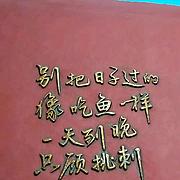 别把日子过的
像吃鱼一样
一天到晚
只顾挑刺